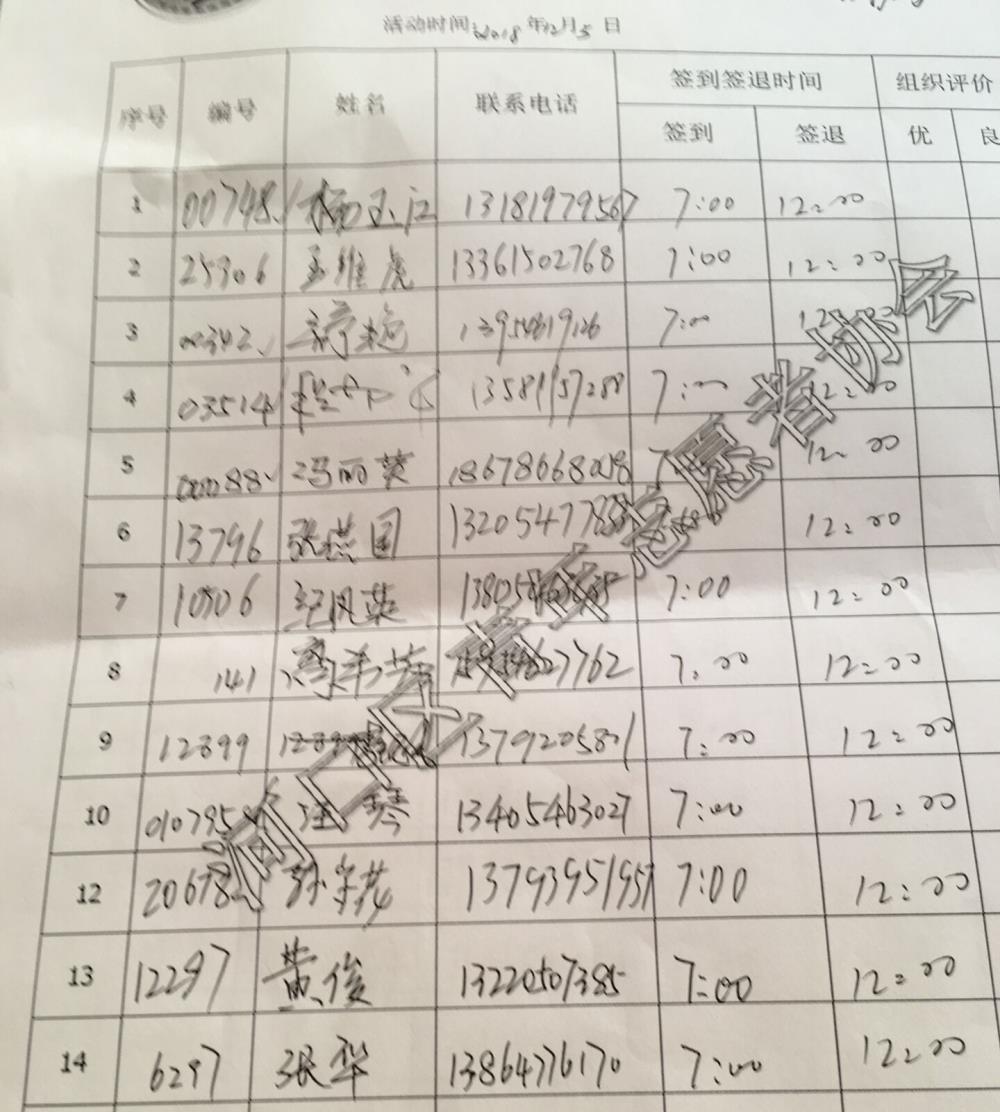 活动时间:2018年12月5日
序号 编号 姓名 联系电话 签到签退时间 组织评价
签到 签退 优 良
1 00748 杨玉江 13181979567 7:00 12:00
2 25906 王维虎 13361502768 7:00 12:00
3 00342 13954819126 7:00 12:00
4 03514 13581157288 7:00 12:00
5 00088 冯丽英 18678668008 7 12:00
6 13796 张燕国 132054778 12:00
7 10506 纪风英 13805 7:00 12:00
8 141 7:00 12:00
9 12899 13792205821 7:00 12:00
10 010795 汪琴 13405463027 7:00 12:00
12 20678 孙宝花 13793951957 7:00 12:00
13 12297 黄俊 13220507385 7:00 12:00
14 6297 张华 13864776170 7:00 12:00
志愿者协会